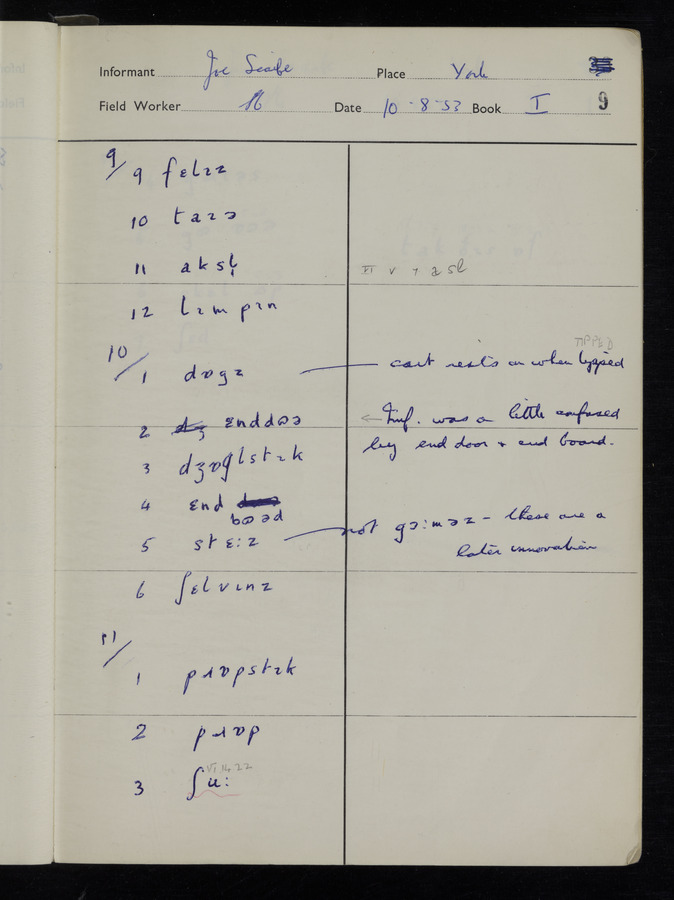 Informant Joe Scaife Place York
Field Worker Date 10-8-53 Book I 9
9/ 9 fɛlɪz
10 taɪə
11 aksl̩ VI V 7 asl
12 lɪmpɪn
10/ 1 dɒgz cart rests on when tipped TIPPED
2 ɛnddʊə ← Inf. was a little confused
by end door + end board.
3 dʒɒglstɪk
4 ɛnd
bʊəd
5 stɛ:z not gɔ:məz - these are a
later innovation
6 ʃɛlvɪnz
11/
1 pɹɒpstɪk
2 pɹɒp
3 ʃu: VI 14 22